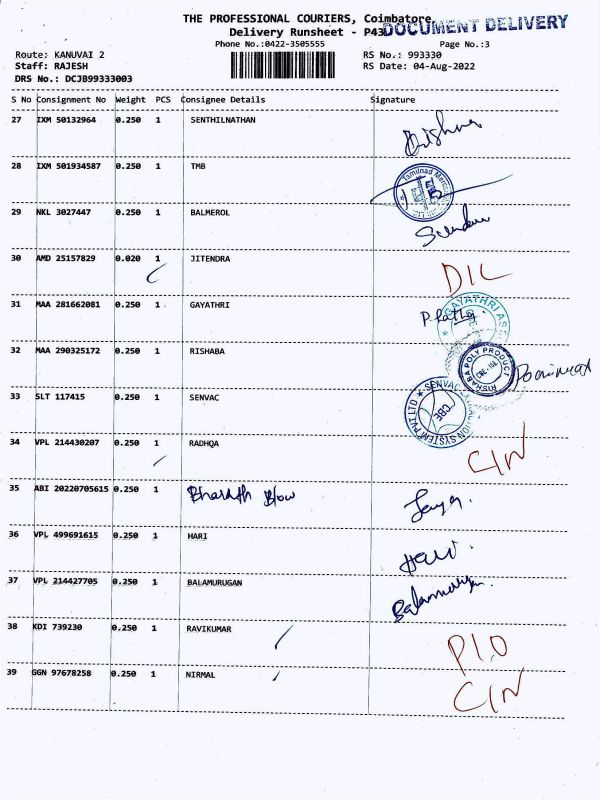 THE PROFESSIONAL COURIERS, Coimbatore.
DOCUMENT DELIVERY
Delivery Runsheet - P43
Phone No.:0422-3505555 Page No.:3
Route: KANUVAI 2 RS No.: 993330
Staff: RAJESH RS Date: 04-Aug-2022
DRS No.: DCJB99333003
S No Consignment No Weight PCS Consignee Details Signature
27 IXM 50132964 0.250 1 SENTHILNATHAN Krishna
28 IXM 501934587 0.250 1 TMB
29 NKL 3027447 0.250 1 BALMEROL
30 AMD 25157829 0.020 1 JITENDRA D/L
31 MAA 281662081 0.250 1 GAYATHRI
GAYATHRI
32 MAA 290325172 0.250 1 RISHABA
RISHABA POLY PRODUCT
33 SLT 117415 0.250 1 SENVAC
SENVAC SYSTEM PVT LTD
CBE
34 VPL 214430207 0.250 1 RADHQA C/N
35 ABI 20220705615 0.250 1 Bharath Blow Jaya.
36 VPL 499691615 0.250 1 HARI Hari.
37 VPL 214427705 0.250 1 BALAMURUGAN Balamurugan.
38 KDI 739230 0.250 1 RAVIKUMAR P/O
39 GGN 97678258 0.250 1 NIRMAL C/N